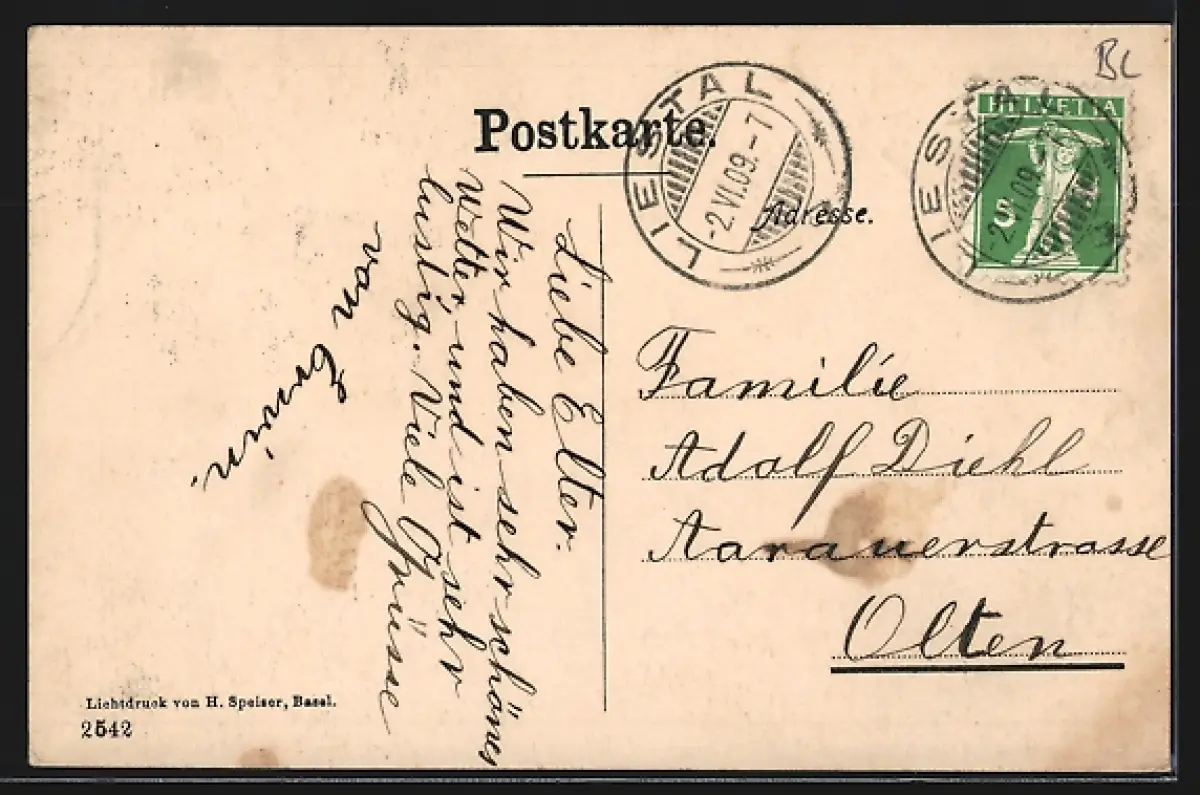 BL
Postkarte.
LIESTAL
-2.VI.09.-7
LIESTAL
-2.VI.09.
HELVETIA
5
Adresse.
Liebe Elter.
Wir haben sehr schönes
Wetter, und ist sehr
lustig. Viele Grüsse
von Erwin.
Familie
Adolf Diehl
Aarauerstrasse
Olten
Lichtdruck von H. Speiser, Basel.
2542